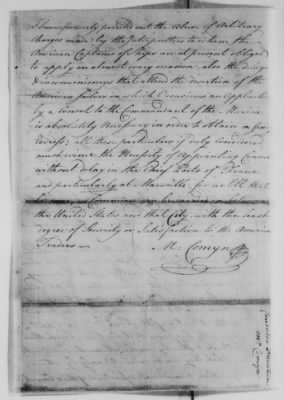 I have formerly pointed out the abuse of Arbitrary
charges made by the Interpreters to whom the
American Captains of Ships are at present obliged
to apply on almost every occasion; also the delays
& inconveniences that attend the desertion of the
American Sailors on which Occasions an Application
by a Consul to the Commandant of the Marine
is absolutely Necessary in order to obtain a
Redress; all these particulars if duly considered
must evince the Necessity of Appointing Consuls
without delay in the Chief Ports of France
and particularly at Marseilles for
Commerce can be carried on between
the United States and that City, with the least
degree of Security or Satisfaction to the American
Traders —
M. Comyn